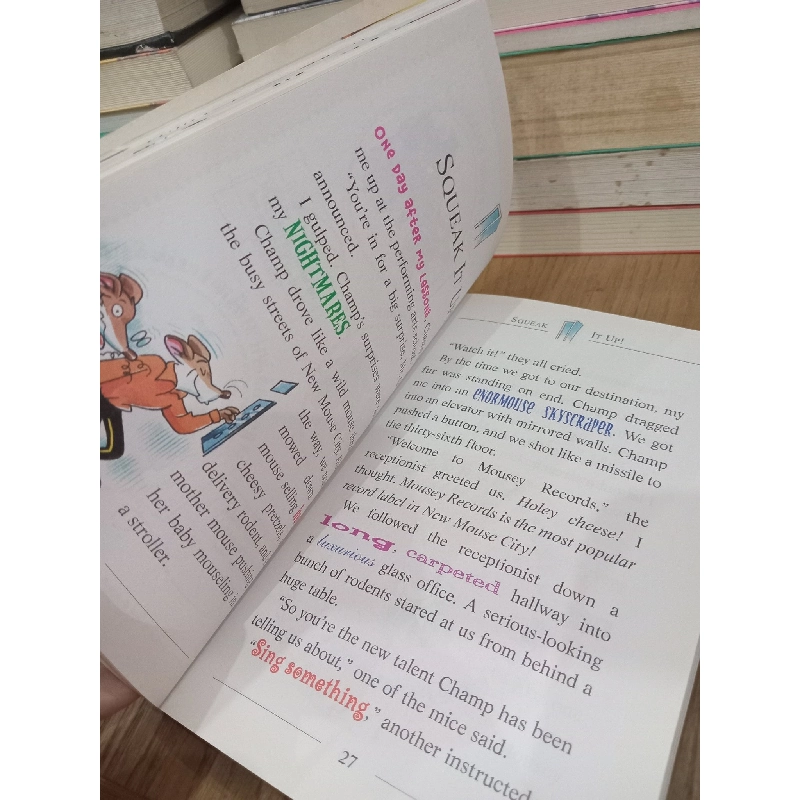 SQUEAK IT
One Day after my Lesson,
me up at the performing arts
"You're in for a big surprise,
announced.
I gulped. Champ's surprises were
my NIGHTMARES.
Champ drove like a wild mouse
the busy streets of New Mouse City.
the way, we
mowed down
mouse selling
cheesy pretzels,
delivery rodent, and
mother mouse pushing
her baby mouseling in
a stroller.
SQUEAK IT UP!
"Watch it!" they all cried.
By the time we got to our destination, my
fur was standing on end. Champ dragged
me into an ENORMOUSE SKYSCRAPER. We got
into an elevator with mirrored walls. Champ
pushed a button, and we shot like a missile to
the thirty-sixth floor.
"Welcome to Mousey Records," the
receptionist greeted us. Holey cheese! I
thought. Mousey Records is the most popular
record label in New Mouse City!
We followed the receptionist down a
long, carpeted hallway into
a luxurious glass office. A serious-looking
bunch of rodents stared at us from behind a
huge table.
"So you're the new talent Champ has been
telling us about," one of the mice said.
"Sing something," another instructed
27